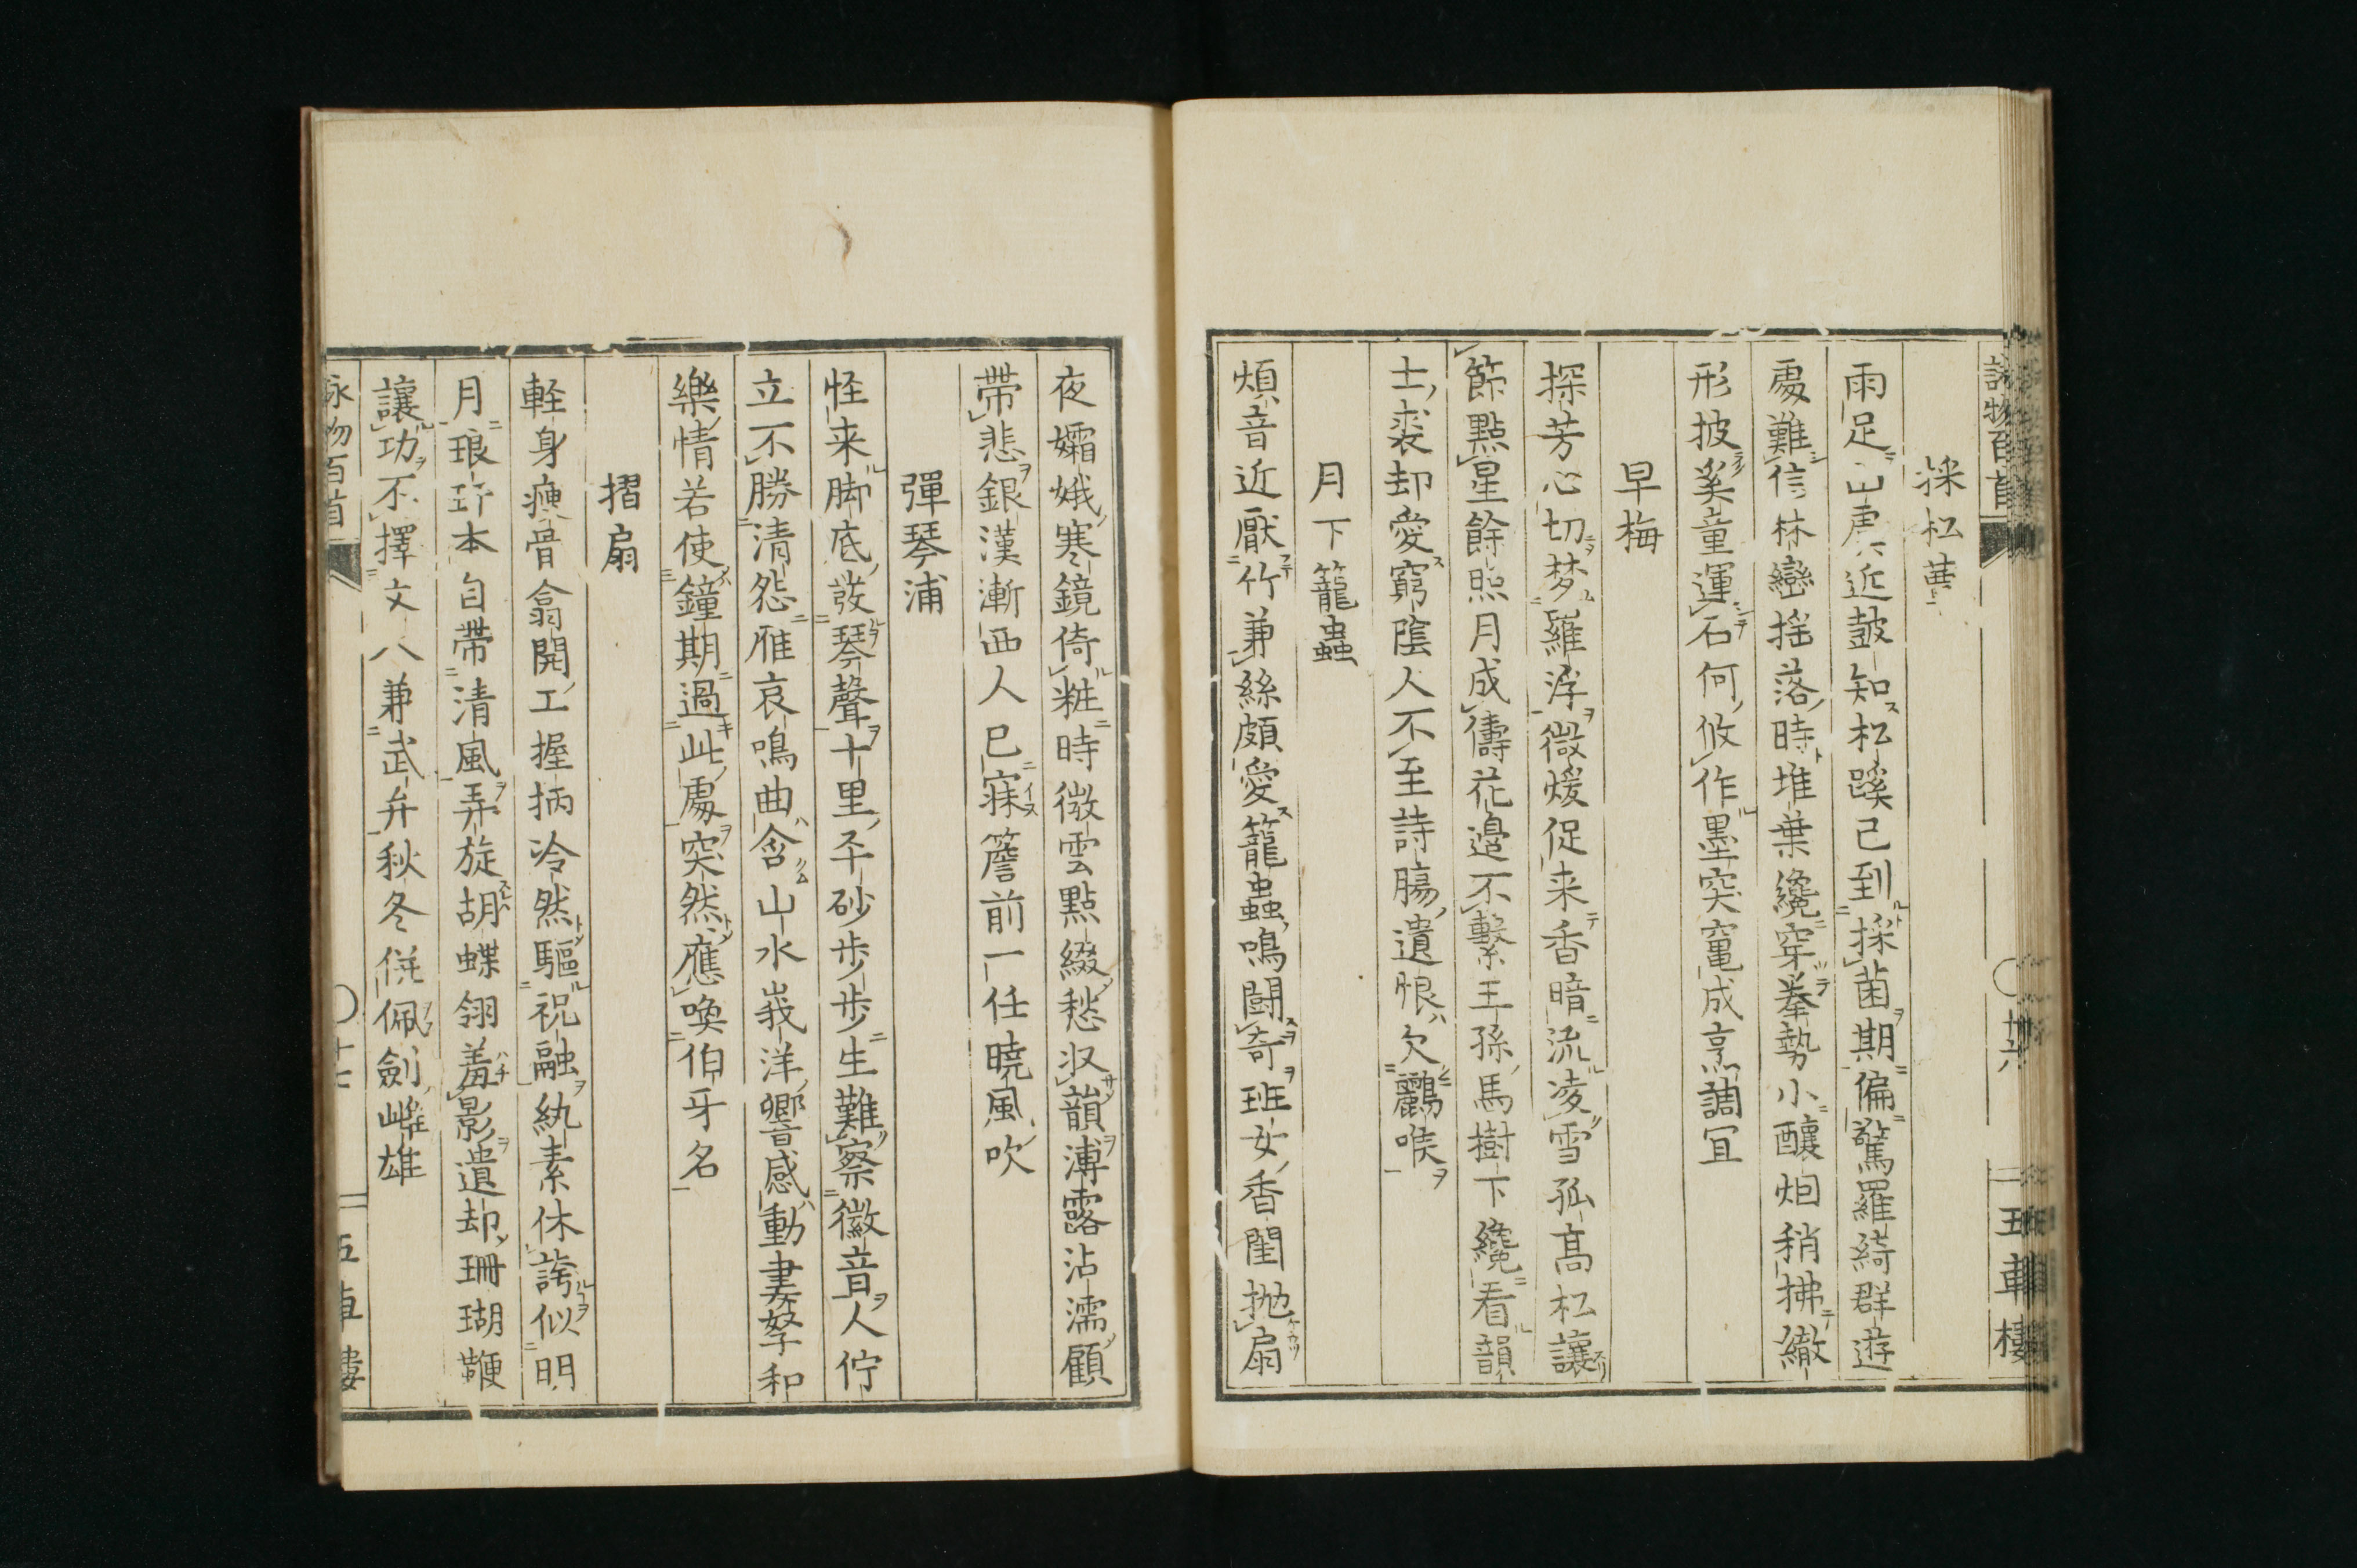 詠物百首
十六
五車樓
採松蕈
雨足山虎近鼓知松蹊已到採菌期偏驚羅綺群遊
處難信林巒揺落時堆葉纔穿拳勢小釀烟稍拂繖
形披奚童運石何攸作墨突竃成烹調冝
早梅
探芳心切梦羅浮微煖促来香暗流凌雪孤高松讓
節點星餘照月成儔花邉不繫王孫馬樹下纔看韻
士裘却愛窮陰人不至詩膓遺恨欠鸝喉
月下籠蟲
煩音近厭竹兼絲頗愛籠蟲鳴闘奇班女香閨抛扇
夜孀娥寒鏡倚粧時微雲點綴愁収韻溥露沾濡顧
帶悲銀漢漸西人已寐簷前一任暁風吹
彈琴浦
怪来脚底發琴聲十里平砂歩歩生難察徽音人佇
立不勝清怨雁哀鳴曲含山水峩洋響感動妻孥和
樂情若使鐘期過此處突然應喚伯牙名
摺扇
軽身瘐骨翕開工握柄冷然驅祝融紈素休誇似明
月琅玕本自帶清風弄旋胡蝶翎羞影遺却珊瑚鞭
讓功不擇文八兼武弁秋冬併佩劍雌雄
詠物百首
十七
五車樓